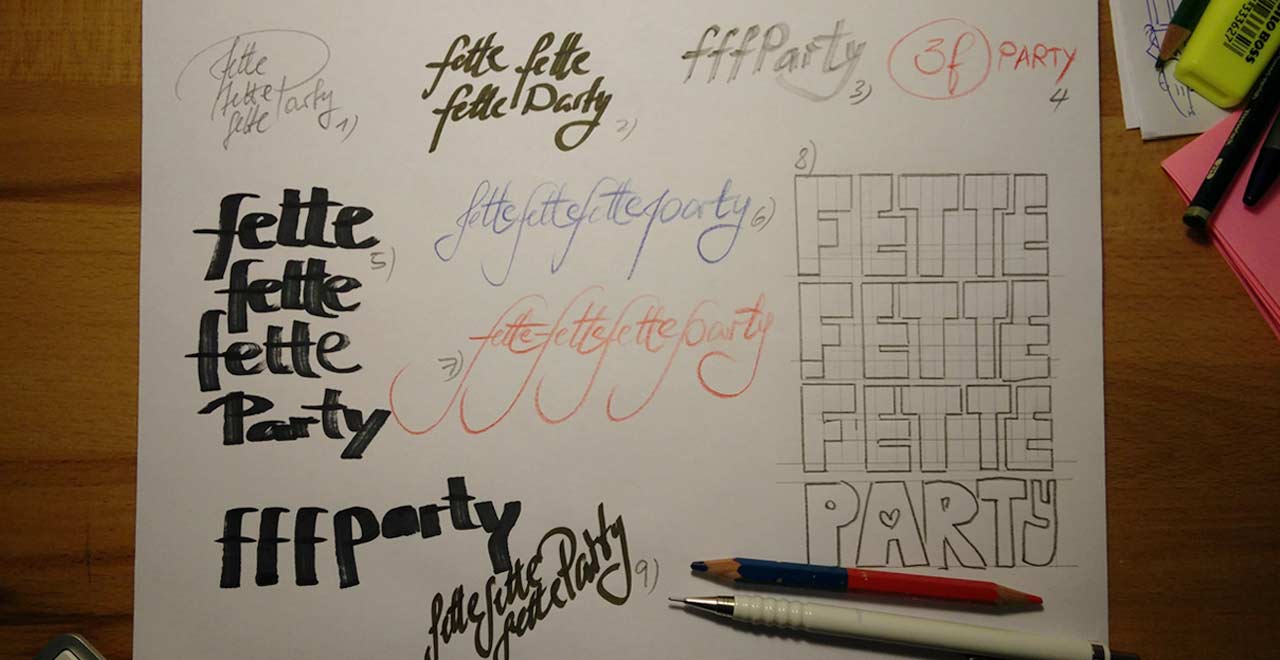 fette
fette Party
fette
1)
fette fette
fette Party
2)
fffParty
3)
3f PARTY
4
fette
fette
fette
Party
5)
fettefettefetteparty
6)
7)
fettefettefetteparty
8)
FETTE
FETTE
FETTE
PARTY
fffparty
fettefette Party
fette
9)
BOSS
333627